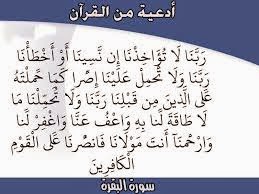 أدعية من القرآن
رَبَّنَا لَا تُؤَاخِذْنَا إِن نَّسِينَا أَوْ أَخْطَأْنَا
رَبَّنَا وَلَا تَحْمِلْ عَلَيْنَا إِصْرًا كَمَا حَمَلْتَهُ
عَلَى الَّذِينَ مِن قَبْلِنَا رَبَّنَا وَلَا تُحَمِّلْنَا مَا
لَا طَاقَةَ لَنَا بِهِ وَاعْفُ عَنَّا وَاغْفِرْ لَنَا
وَارْحَمْنَا أَنتَ مَوْلَانَا فَانصُرْنَا عَلَى الْقَوْمِ
الْكَافِرِينَ
سورة البقرة